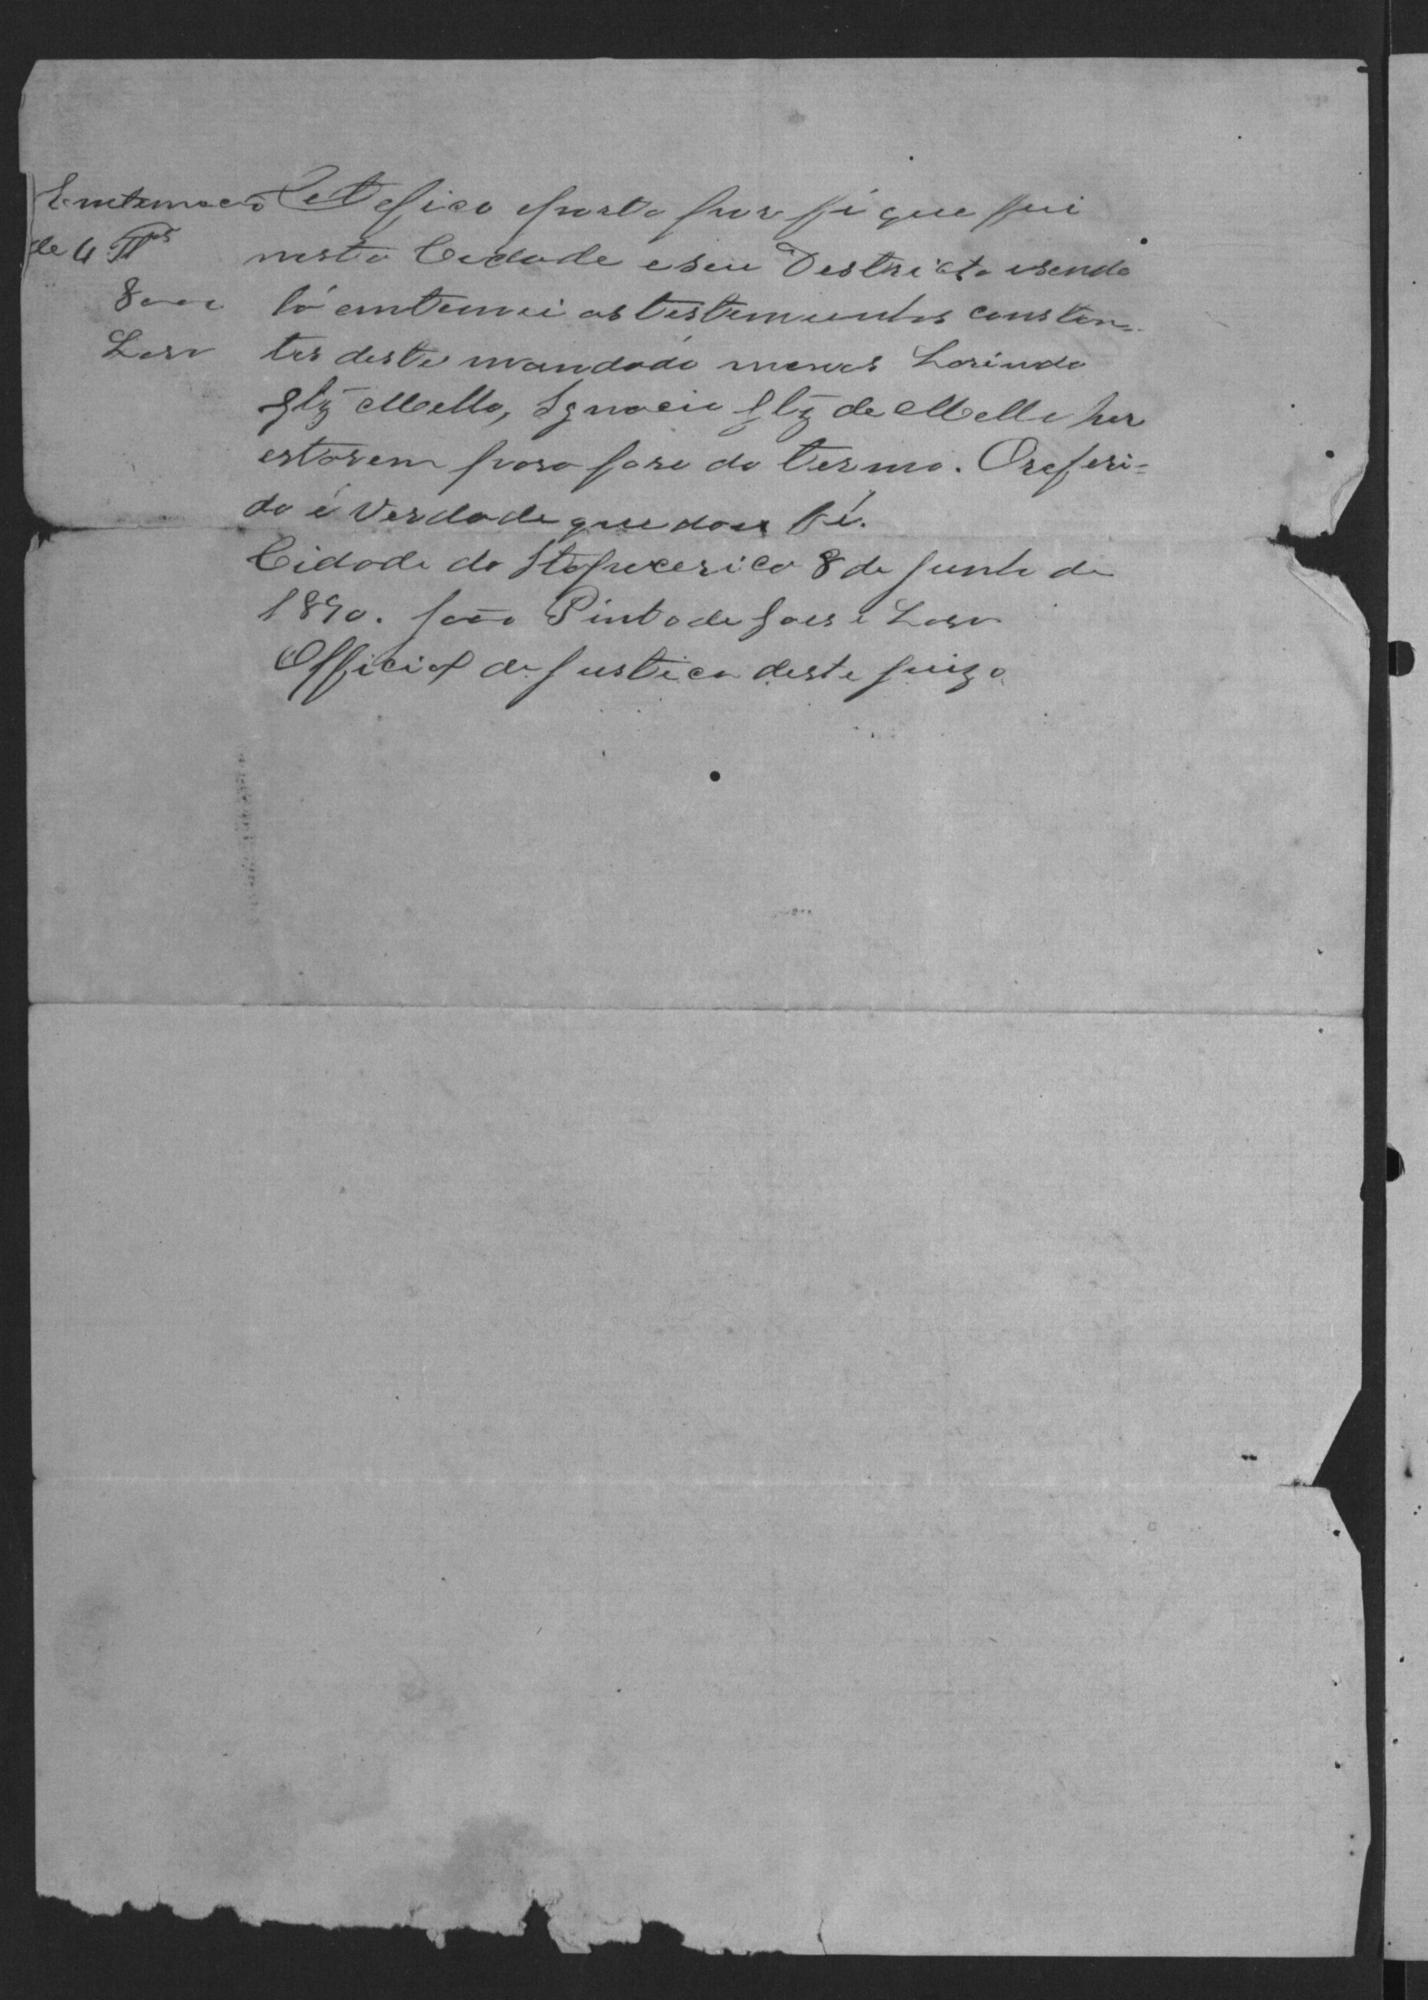 Emtemacão
de 4 TTas
8000
Lara
Certefico eporto por fé que fui
nesta Cedade e seu Destricto e sendo
lá emtemei as testemunhas constan-
tes deste mandado menos Larindo
Glz Mello, Ignacio Glz de Mello por
estarem para fora do termo. O referi=
do é Verdade que dou fé.
Cidade do Itapecerica 8 de Junho de
1890. João Pinto de Goes e Lara
Official de Justica deste Juizo